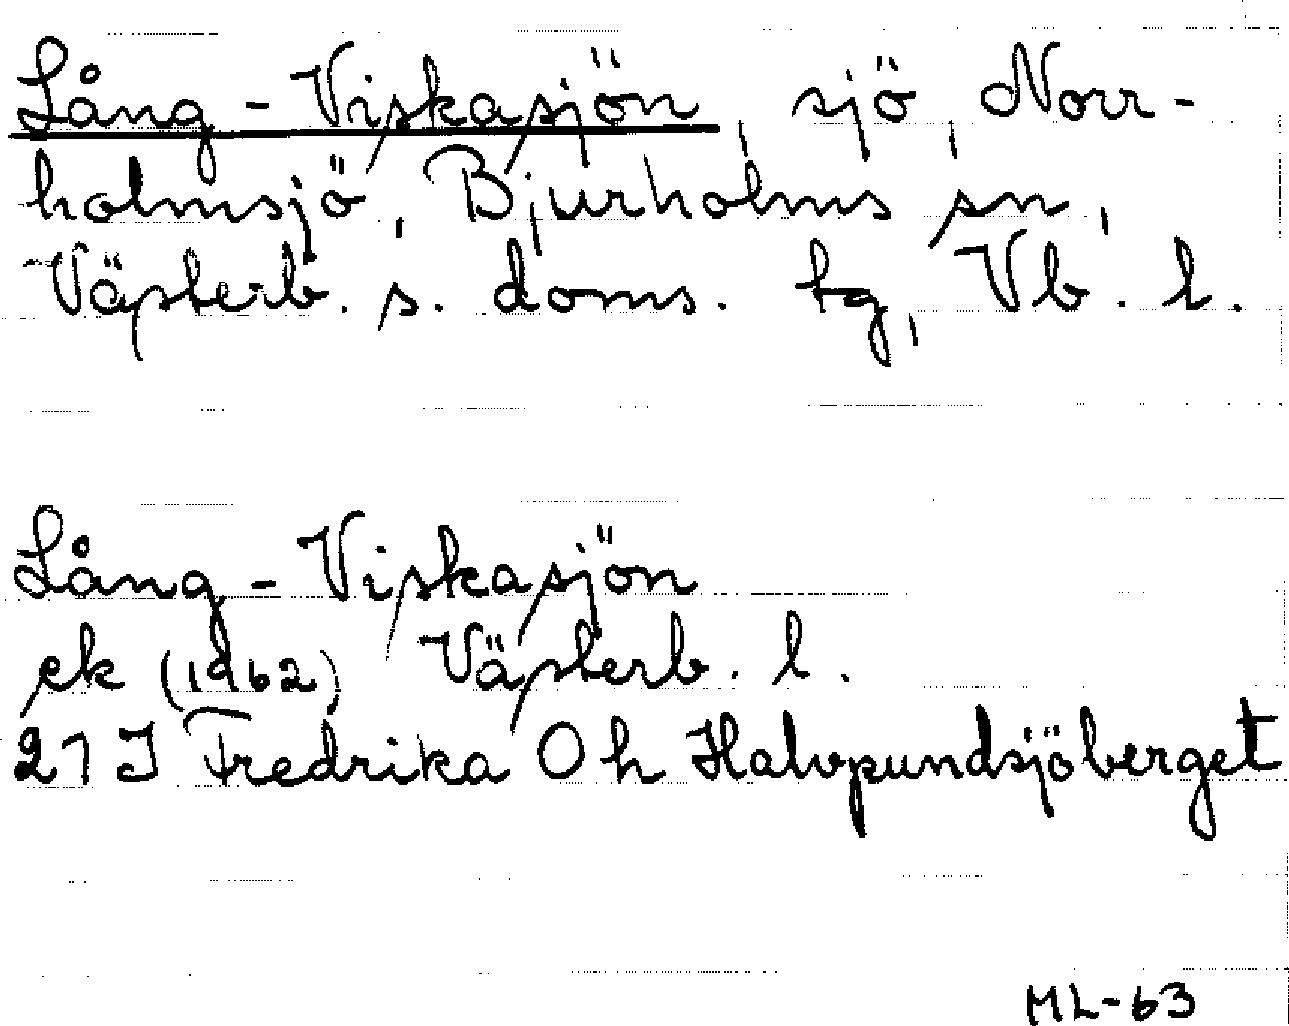 Lång-Viskasjön, sjö, Norr-
holmsjö, Bjurholms sn,
Västerb. s. doms. tg, Vb. l.
Lång-Viskasjön
ek (1962) Västerb. l.
21 J Fredrika O h Halvpundsjöberget
ML-63